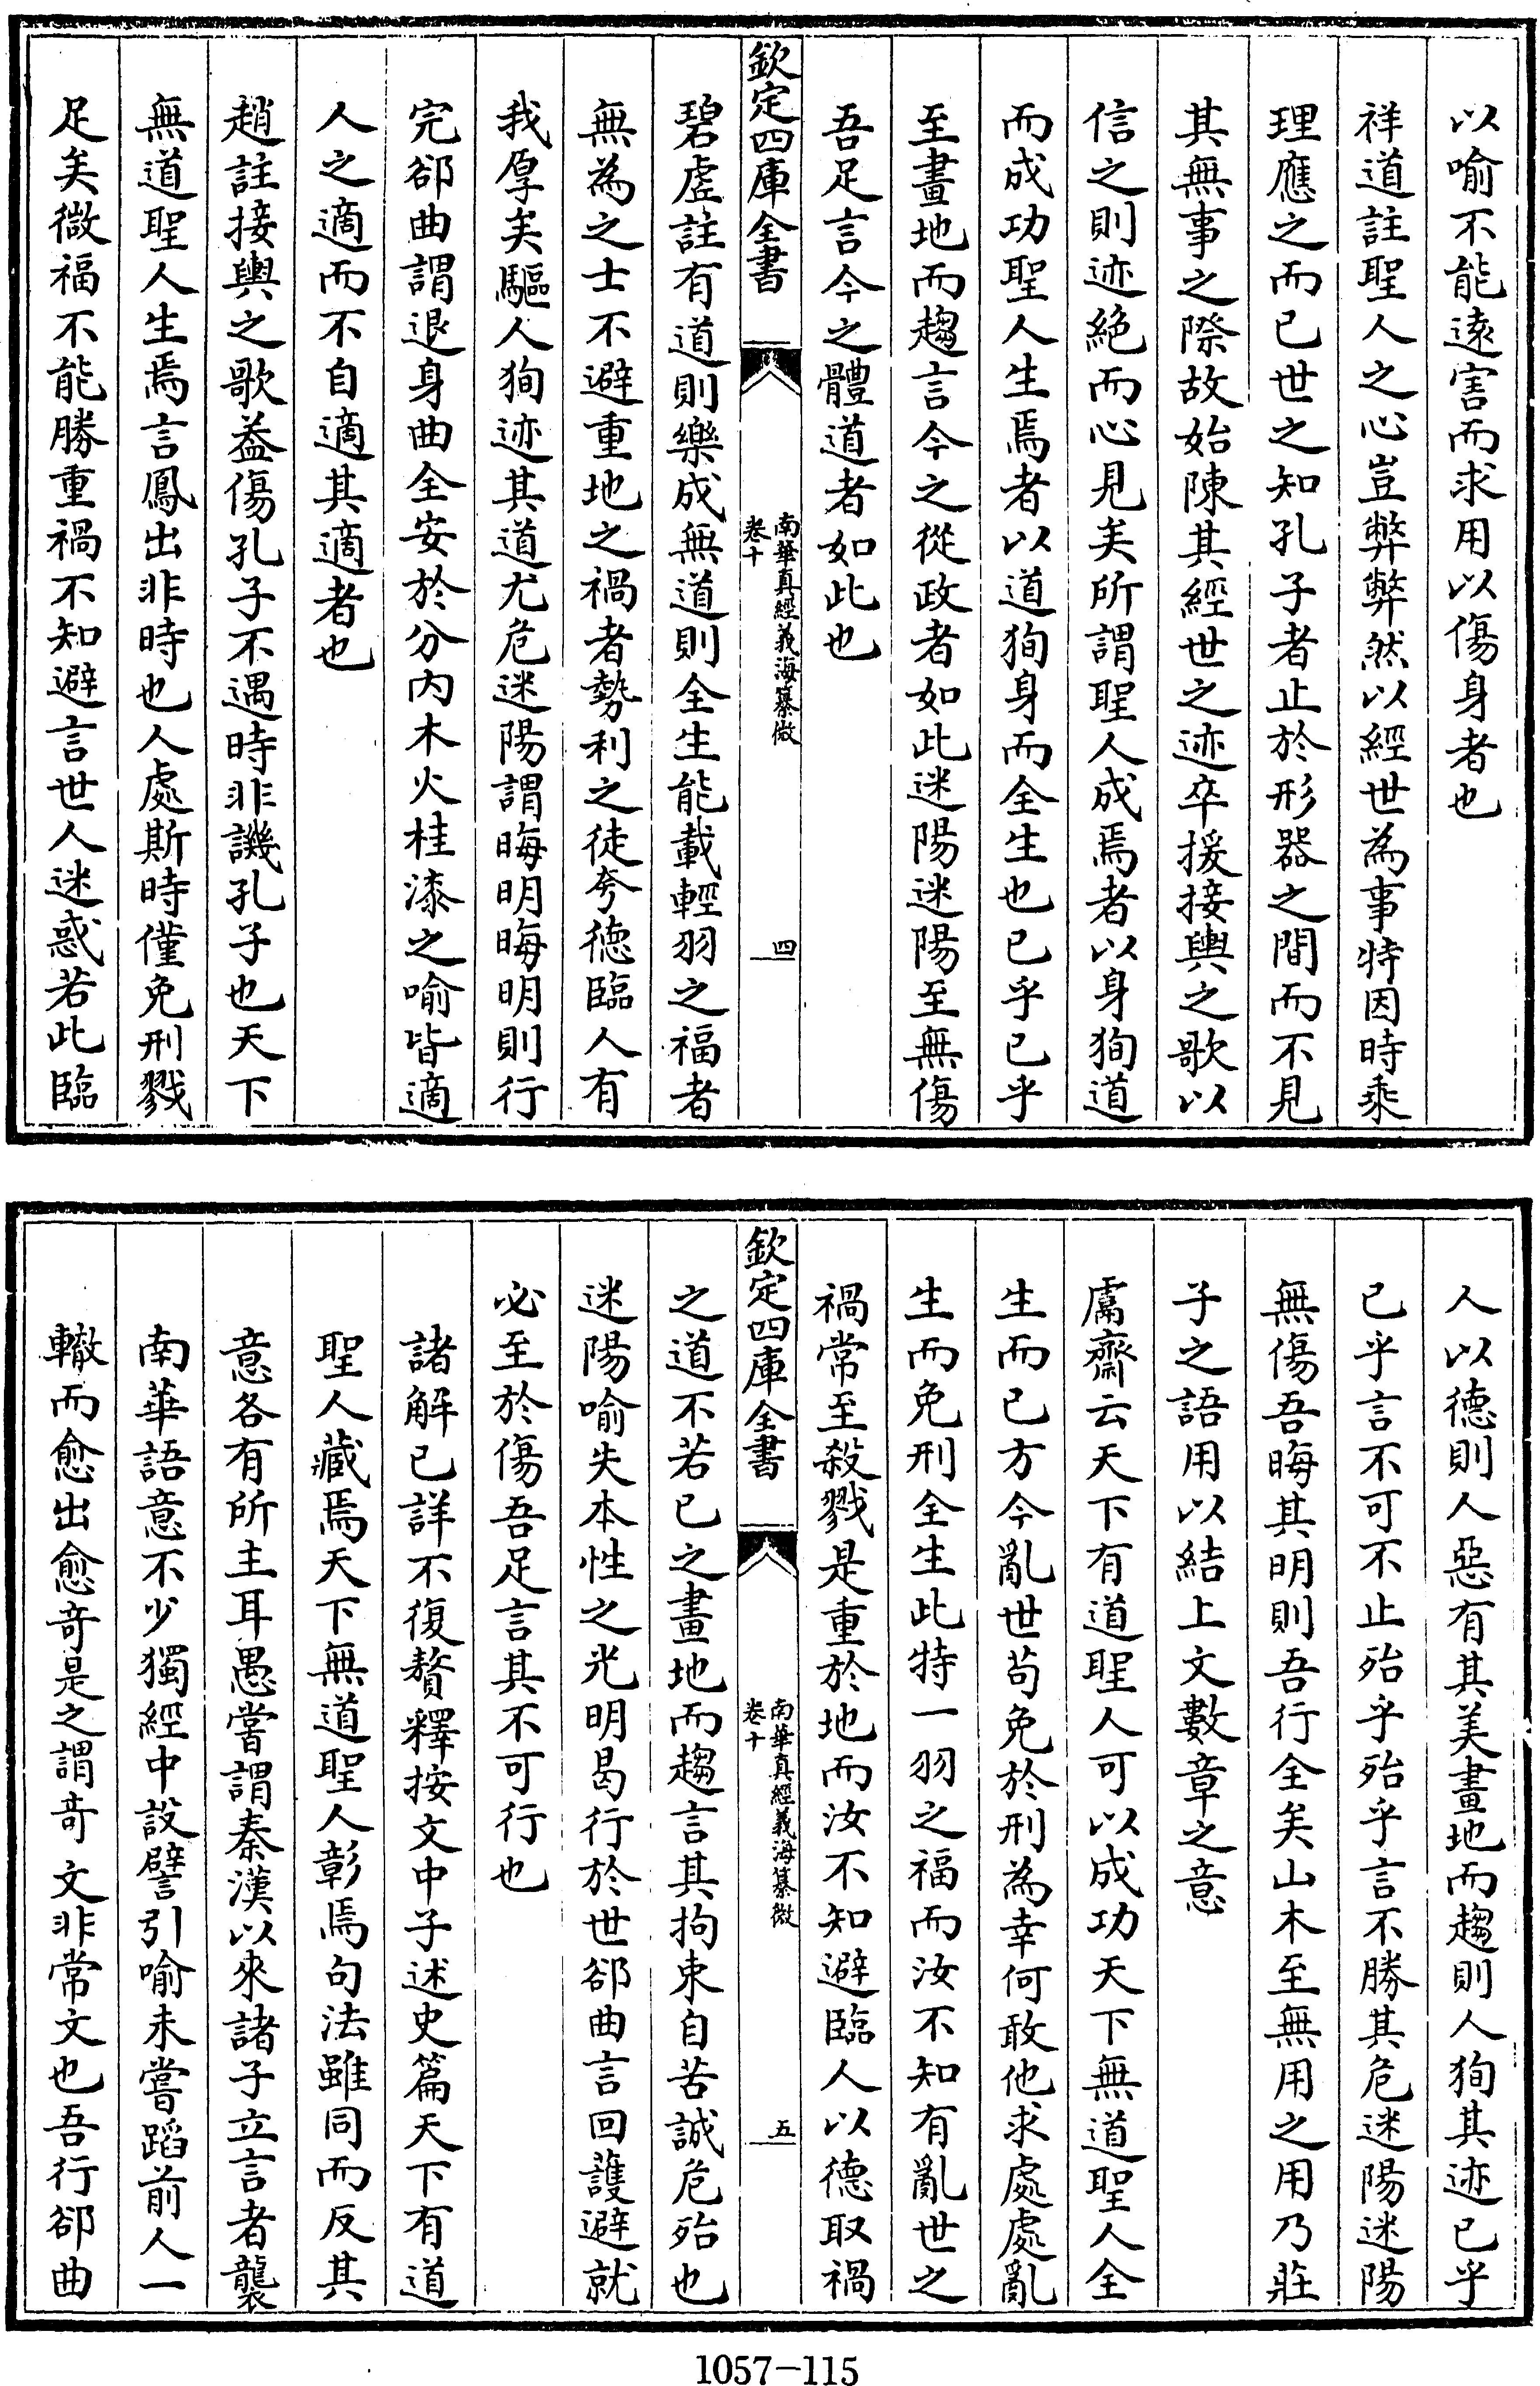 以喻不能遠害而求用以傷身者也
祥道註聖人之心豈弊弊然以經世為事特因時乘
理應之而已世之知孔子者止於形器之間而不見
其無事之際故始陳其經世之迹卒援接輿之歌以
信之則迹絶而心見矣所謂聖人成焉者以身狥道
而成功聖人生焉者以道狥身而全生也已乎已乎
至畫地而趨言今之從政者如此迷陽迷陽至無傷
吾足言今之體道者如此也
欽定四庫全書
南華真經義海纂微
卷十
四
碧虛註有道則樂成無道則全生能載輕羽之福者
無為之士不避重地之禍者勢利之徒夸德臨人有
我厚矣驅人狥迹其道尤危迷陽謂晦明晦明則行
完郤曲謂退身曲全安於分内木火桂漆之喻皆適
人之適而不自適其適者也
趙註接輿之歌葢傷孔子不遇時非譏孔子也天下
無道聖人生焉言鳳出非時也人處斯時僅免刑戮
足矣微福不能勝重禍不知避言世人迷惑若此臨
人以德則人惡有其美畫地而趨則人狥其迹已乎
已乎言不可不止殆乎殆乎言不勝其危迷陽迷陽
無傷吾晦其明則吾行全矣山木至無用之用乃莊
子之語用以結上文數章之意
鬳齋云天下有道聖人可以成功天下無道聖人全
生而已方今亂世苟免於刑為幸何敢他求處處亂
生而免刑全生此特一羽之福而汝不知有亂世之
禍常至殺戮是重於地而汝不知避臨人以德取禍
欽定四庫全書
南華真經義海纂微
卷十
五
之道不若已之畫地而趨言其拘束自苦誠危殆也
迷陽喻失本性之光明曷行於世郤曲言回護避就
必至於傷吾足言其不可行也
諸解已詳不復贅釋按文中子述史篇天下有道
聖人藏焉天下無道聖人彰焉句法雖同而反其
意各有所主耳愚嘗謂秦漢以來諸子立言者襲
南華語意不少獨經中設譬引喻未嘗蹈前人一
轍而愈出愈奇是之謂奇文非常文也吾行郤曲
1057-115